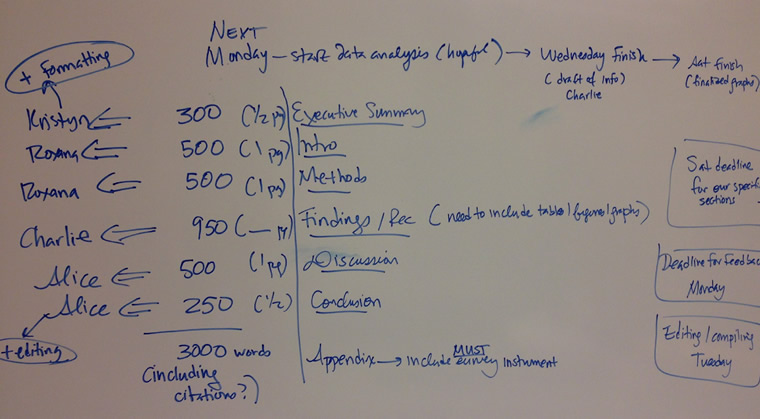 NEXT
Monday – start data analysis (hopeful) → Wednesday Finish → Sat finish
(draft of info) (finalized graphs)
Charlie
+ formatting
Kristyn ⇐ 300 (1/2 pg) Executive Summary
Roxana ⇐ 500 (1 pg) Intro
Roxana ⇐ 500 (1 pg) Methods
Charlie ⇐ 950 (— pg) Findings / Rec (need to include tables/figures/graphs)
Alice ⇐ 500 (1 pg) Discussion
Alice ⇐ 250 (1/2) Conclusion
+ editing
3000 words
(including
citations?)
Appendix → include MUST survey instrument
Sat deadline
for our specific
sections
Deadline for Feedback
Monday
Editing / compiling
Tuesday